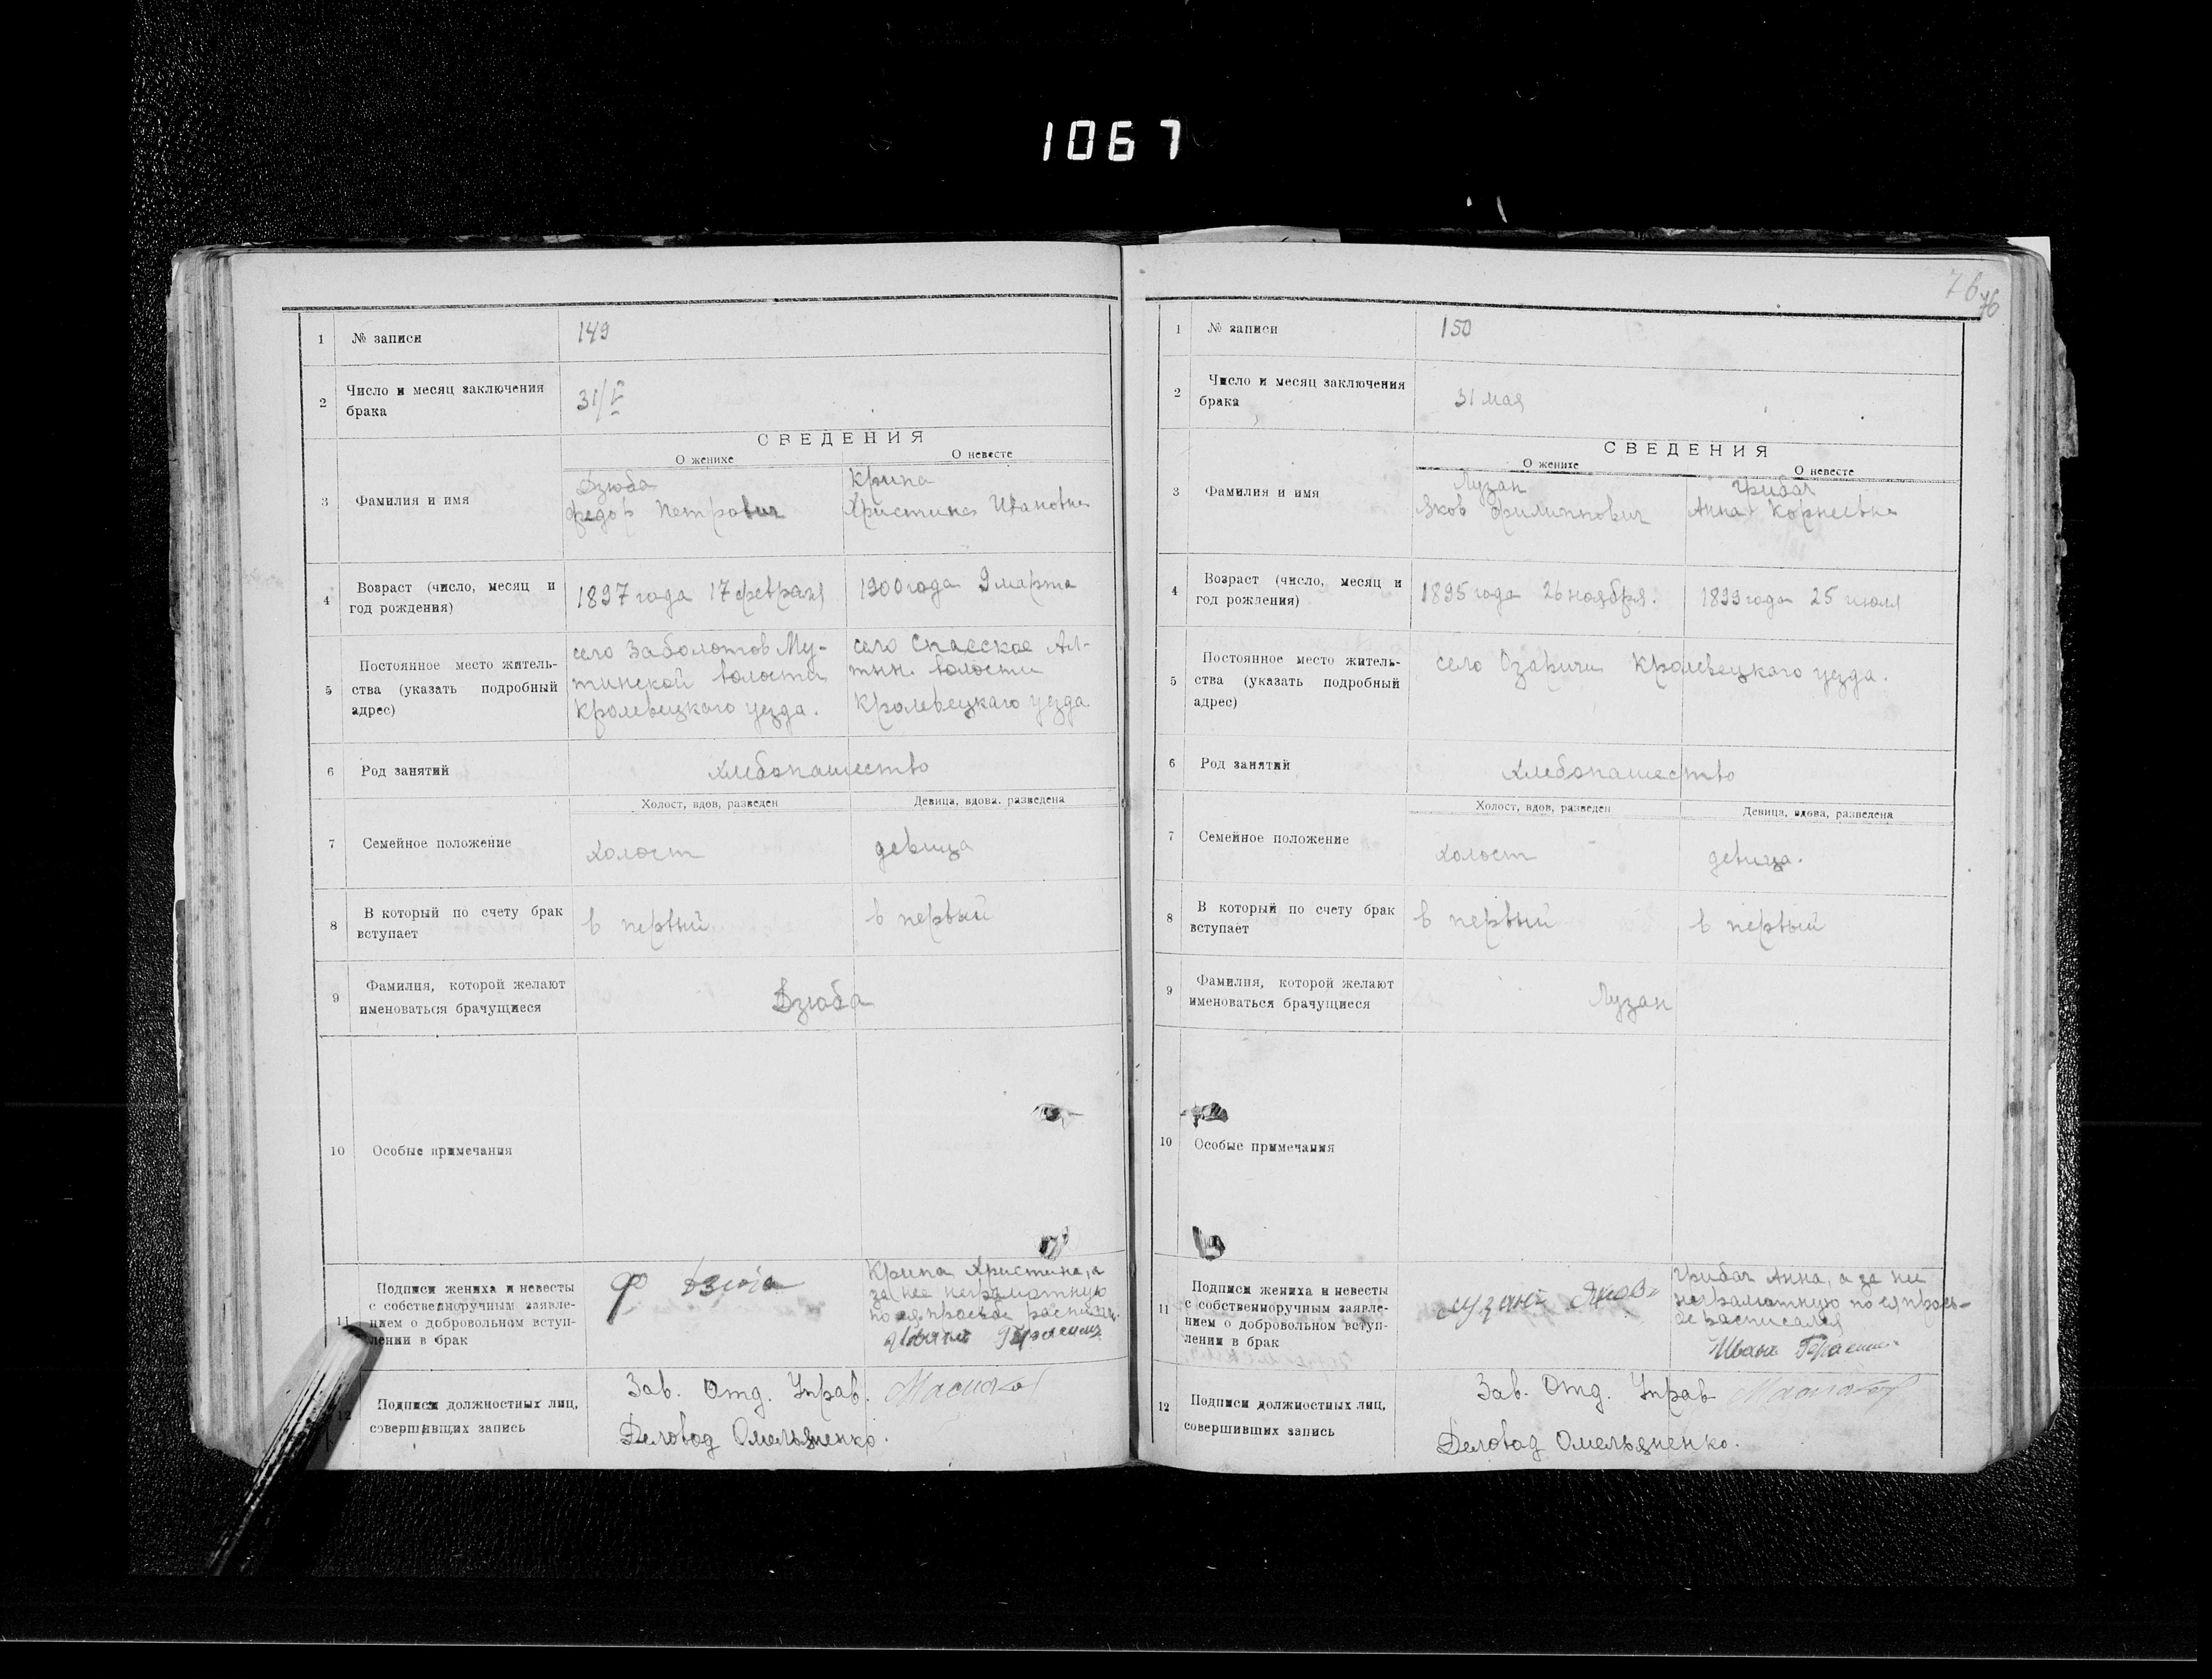 1067
1 № записи 149
2 Число и месяц заключения
брака
31/V
СВЕДЕНИЯ
О женихе О невесте
3 Фамилия и имя
Дзюба
Федор Петрович
Крипа
Христина Ивановна
4 Возраст (число, месяц и
год рождения)
1897 года 17 февраля
1900 года 9 марта
5 Постоянное место житель-
ства (указать подробный
адрес)
село Заболотов Му-
тинской волости
Кролевецкого уезда.
село Спасское Ал-
тин. волости
Кролевецкого уезда
6 Род занятий
хлебопашество
Холост, вдов, разведен Девица, вдова, разведена
7 Семейное положение
холост девица
8 В который по счету брак
вступает
в первый в первый
9 Фамилия, которой желают
именоваться брачущиеся
Дзюба
10 Особые примечания
11 Подписи жениха и невесты
с собственноручным заявле-
нием о добровольном вступ-
лении в брак
Ф Дзюба
Крипа Христина, а
за нее неграмотную
по ея просьбе
12 Подписи должностных лиц,
совершивших запись
Зав. Отд. Управ.
Деловод Омельяненко.
76
76
1 № записи 150
2 Число и месяц заключения
брака
31 мая
СВЕДЕНИЯ
О женихе О невесте
3 Фамилия и имя
Лузан
Яков Филиппович
Грибач
Анна Корнеевна
4 Возраст (число, месяц и
год рождения)
1895 года 26 ноября.
1899 года 25 июля
5 Постоянное место житель-
ства (указать подробный
адрес)
село Озаричи Кролевецкого уезда.
6 Род занятий
хлебопашество
Холост, вдов, разведен Девица, вдова, разведена
7 Семейное положение
холост девица.
8 В который по счету брак
вступает
в первый в первый
9 Фамилия, которой желают
именоваться брачущиеся
Лузан
10 Особые примечания
11 Подписи жениха и невесты
с собственноручным заявле-
нием о добровольном вступ-
лении в брак
Грибач Анна, а за нее
неграмотную по ея прось-
бе расписался
Иван
12 Подписи должностных лиц,
совершивших запись
Зав. Отд. Управ
Деловод Омельяненко.